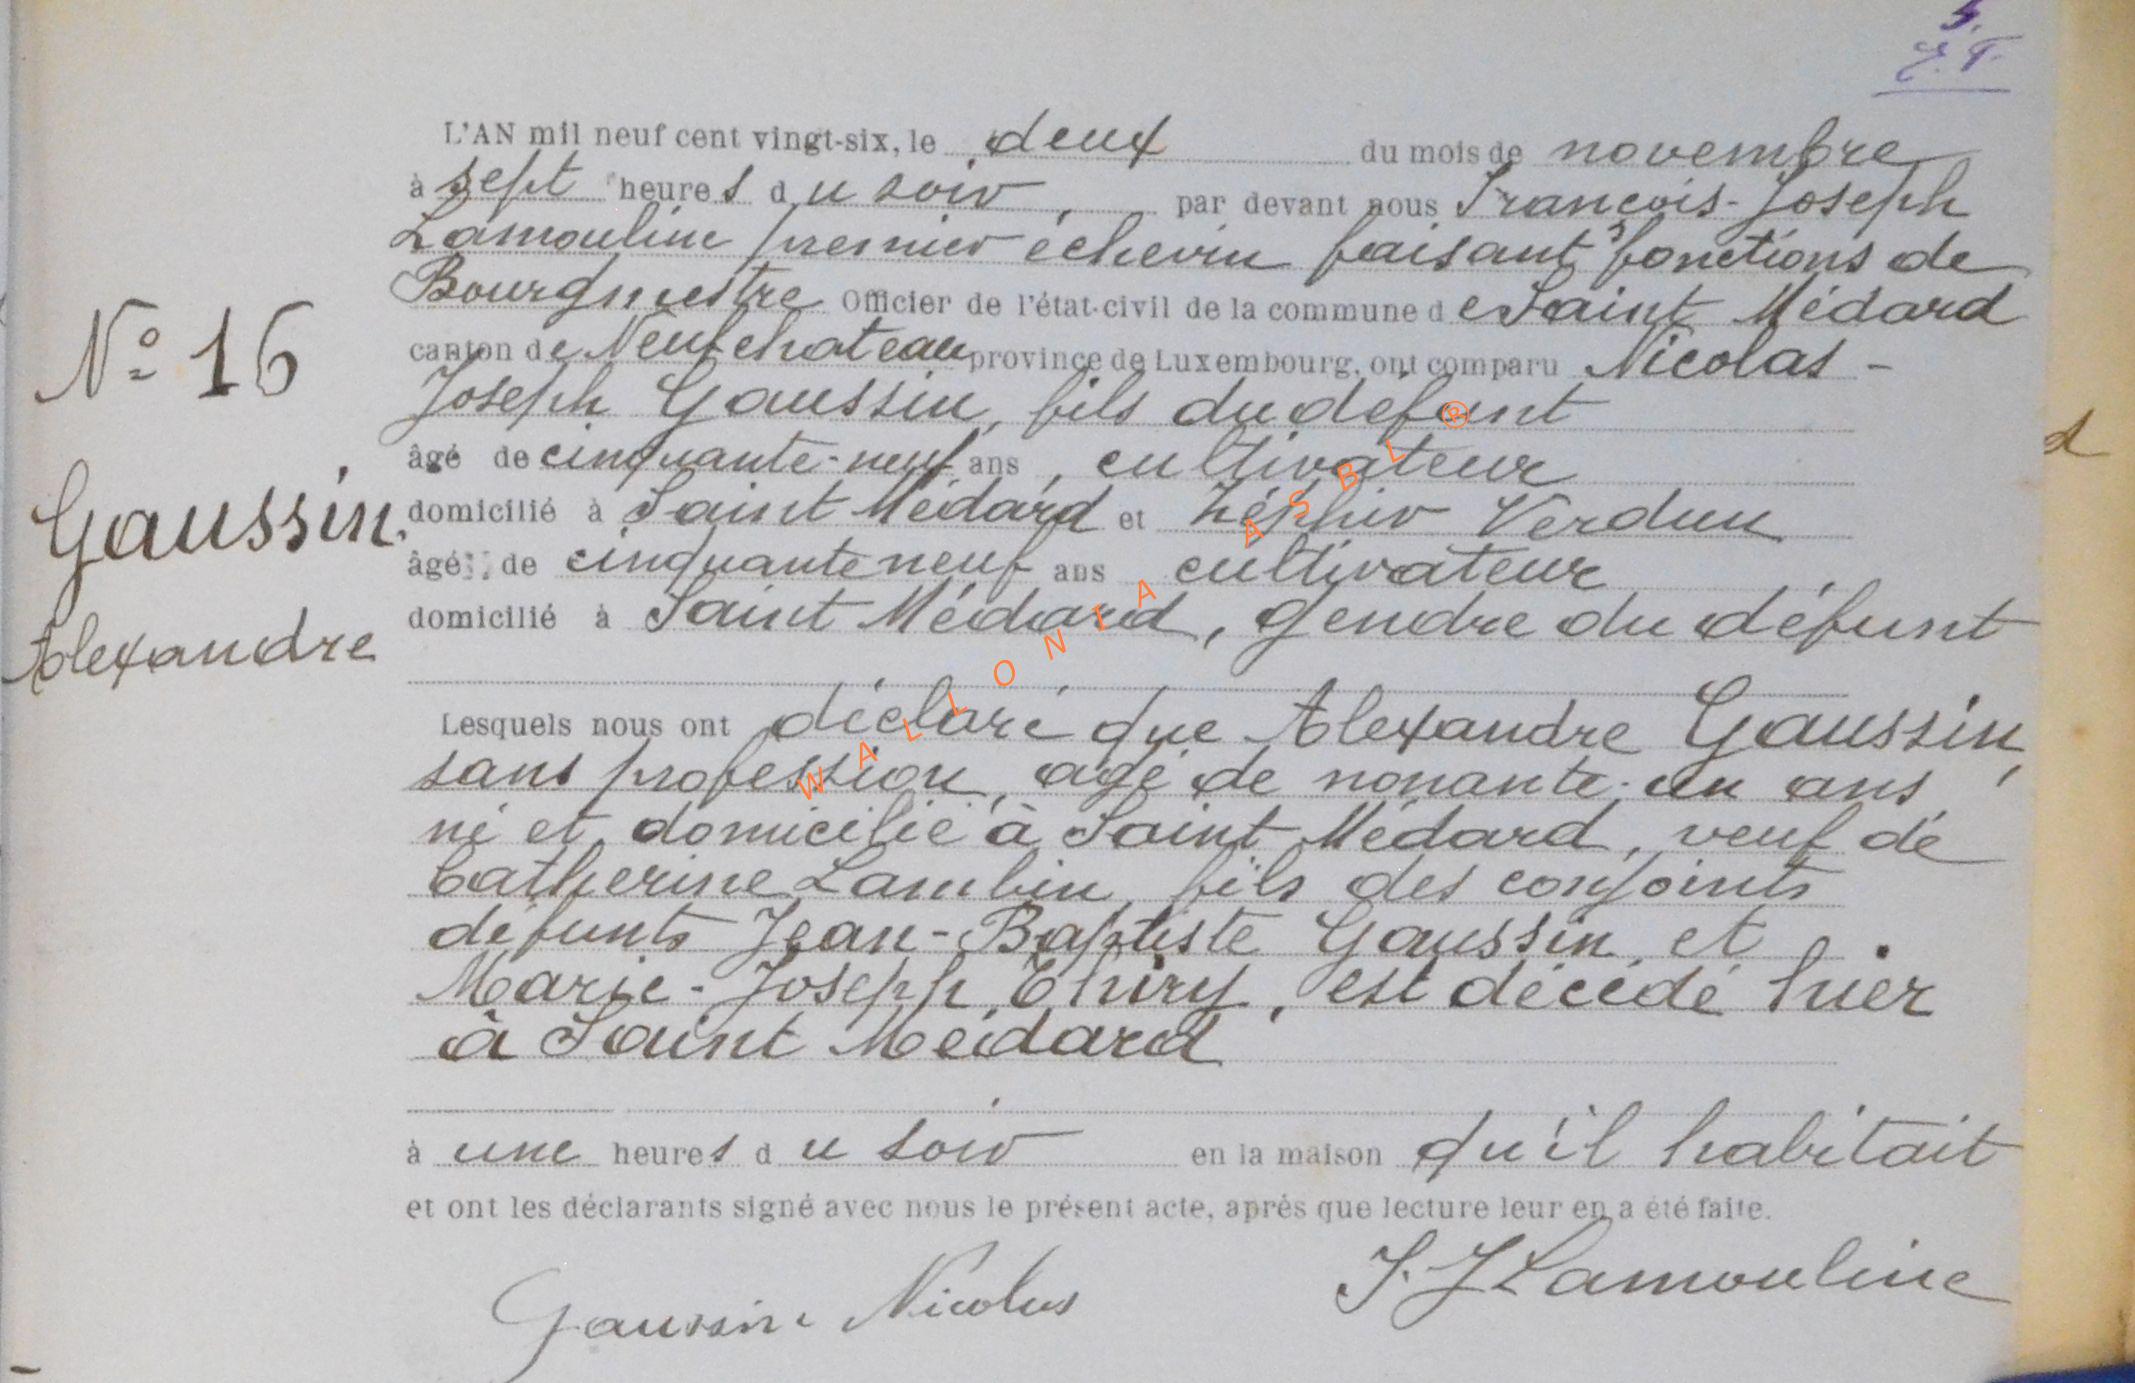 5.
J.T.
L'AN mil neuf cent vingt-six, le deux du mois de novembre
à sept heures du soir, par devant nous François-Joseph
Lamouline premier échevin faisant fonctions de
Bourgmestre Officier de l'état-civil de la commune de Saint Médard
canton de Neufchateau province de Luxembourg, ont comparu Nicolas-
Joseph Gaussin, fils du defunt
âgé de cinquante-neuf ans, cultivateur
domicilié à Saint Médard et Zéphir Verdun
âgé de cinquante neuf ans cultivateur
domicilié à Saint Médard, gendre du défunt
Lesquels nous ont déclaré que Alexandre Gaussin,
sans profession, agé de nonante-un ans,
né et domicilié à Saint Médard, veuf de
Catherine Lambin fils des conjoints
défunts Jean-Baptiste Gaussin et
Marie-Joseph Thiry, est décédé hier
à Saint Médard
à une heures du soir en la maison qu'il habitait
et ont les déclarants signé avec nous le présent acte, après que lecture leur en a été faite.
Gaussin Nicolas
F. J Lamouline
N° 16
Gaussin,
Alexandre
WALLONIA ASBL ®